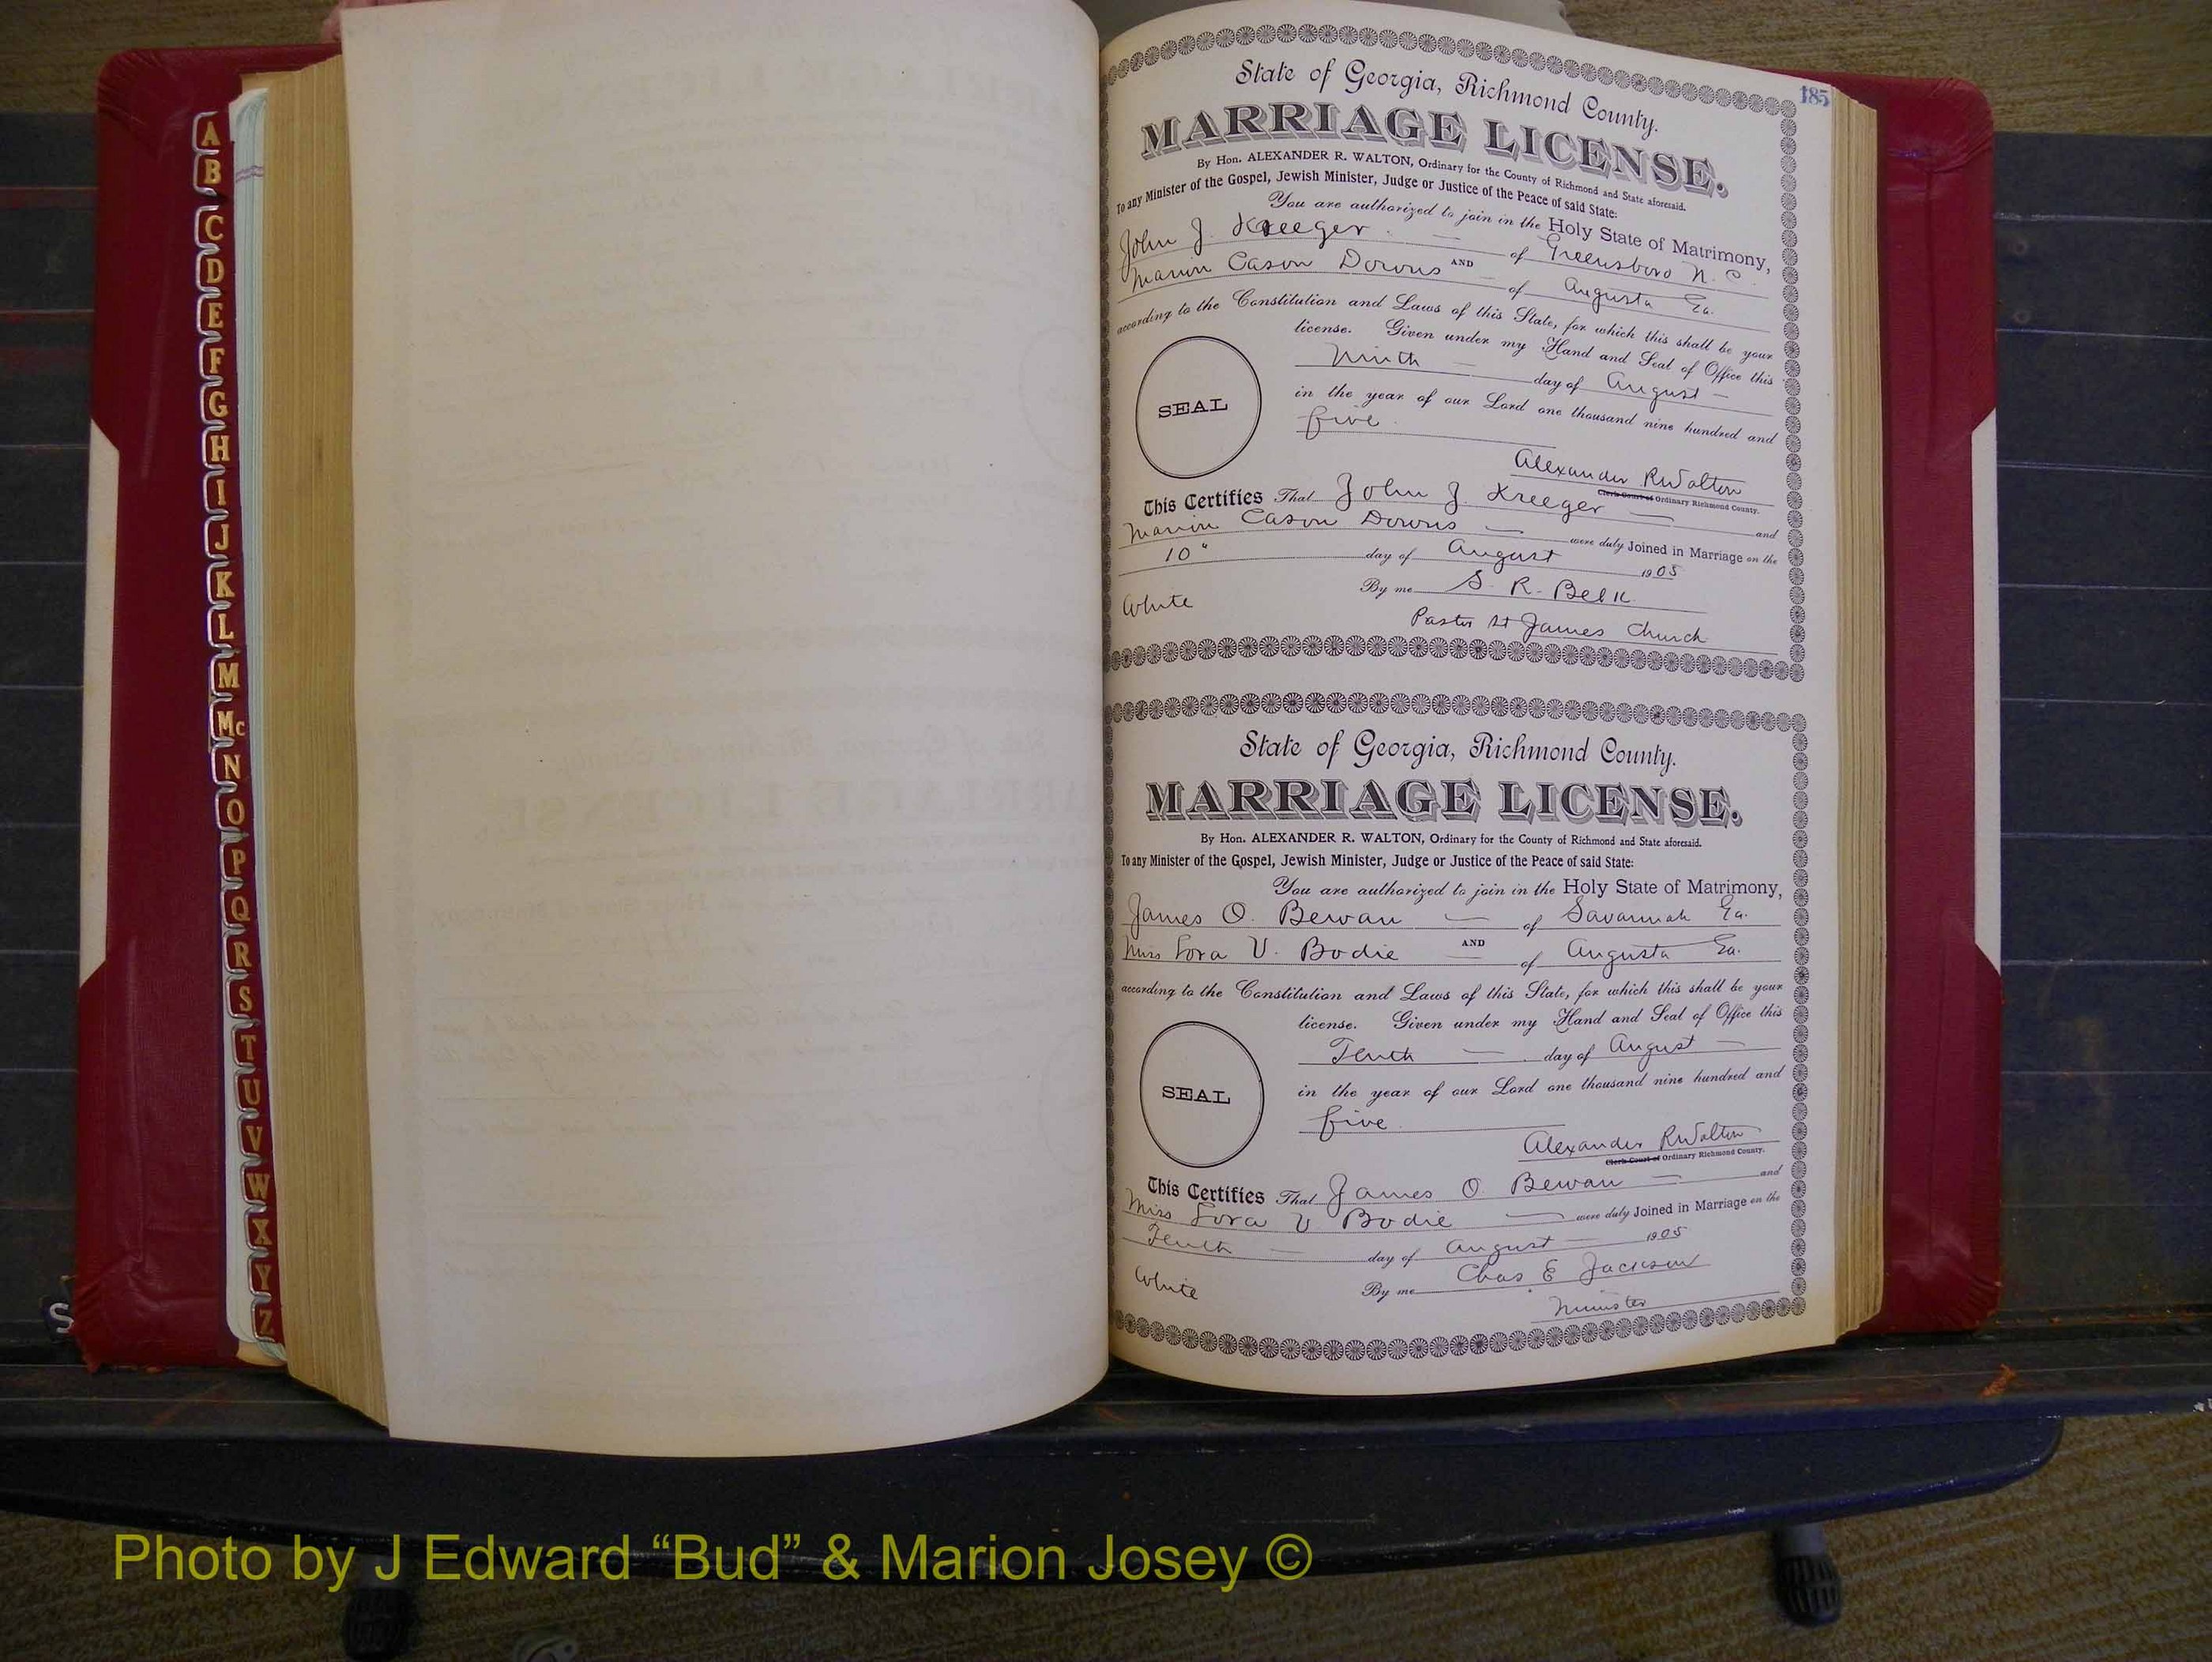 A
B
C
D
E
F
G
H
I
J
K
L
M
Mc
N
O
P
Q
R
S
T
U
V
W
X
Y
Z
S
185
State of Georgia, Richmond County.
MARRIAGE LICENSE.
By Hon. ALEXANDER R. WALTON, Ordinary for the County of Richmond and State aforesaid.
To any Minister of the Gospel, Jewish Minister, Judge or Justice of the Peace of said State:
You are authorized to join in the Holy State of Matrimony,
John J. Kreeger of Greensboro N. C.
AND
Marion Cason Downs of Augusta Ga.
according to the Constitution and Laws of this State, for which this shall be your
license. Given under my Hand and Seal of Office this
Ninth day of August
in the year of our Lord one thousand nine hundred and
five
SEAL
Alexander R Walton
Clerk Court of Ordinary Richmond County.
This Certifies That John J. Kreeger and
Marion Cason Downs were duly Joined in Marriage on the
10" day of August 1905
By me S. R. Belk
White
Pastor St James Church
State of Georgia, Richmond County.
MARRIAGE LICENSE.
By Hon. ALEXANDER R. WALTON, Ordinary for the County of Richmond and State aforesaid.
To any Minister of the Gospel, Jewish Minister, Judge or Justice of the Peace of said State:
You are authorized to join in the Holy State of Matrimony,
James O. Bewan of Savannah Ga.
AND
Miss Lora V. Bodie of Augusta Ga.
according to the Constitution and Laws of this State, for which this shall be your
license. Given under my Hand and Seal of Office this
Tenth day of August
in the year of our Lord one thousand nine hundred and
five
SEAL
Alexander R Walton
Clerk Court of Ordinary Richmond County.
This Certifies That James O Bewan and
Miss Lora V Bodie were duly Joined in Marriage on the
Tenth day of August 1905
By me Chas E Jackson
White
Minister
Photo by J Edward “Bud” & Marion Josey ©